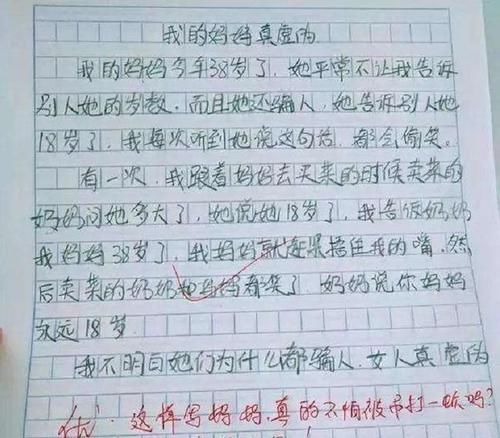 我的妈妈真虚伪
我的妈妈今年38岁了，她平常不让我告诉
别人她的岁数，而且她还骗人，她告诉别人她
18岁了，我每次听到她说这句话，都会偷笑。
有一次，我跟着妈妈去买菜的时候卖菜的
奶奶问她多大了，她说她18岁了，我告诉奶奶
我妈妈38岁了，我妈妈就赶紧捂住我的嘴，然
后卖菜的奶奶和妈妈都笑了，奶奶说你妈妈
永远18岁
我不明白她们为什么都骗人，女人真虚伪
优：这样写妈妈，真的不怕被吊打一顿吗？